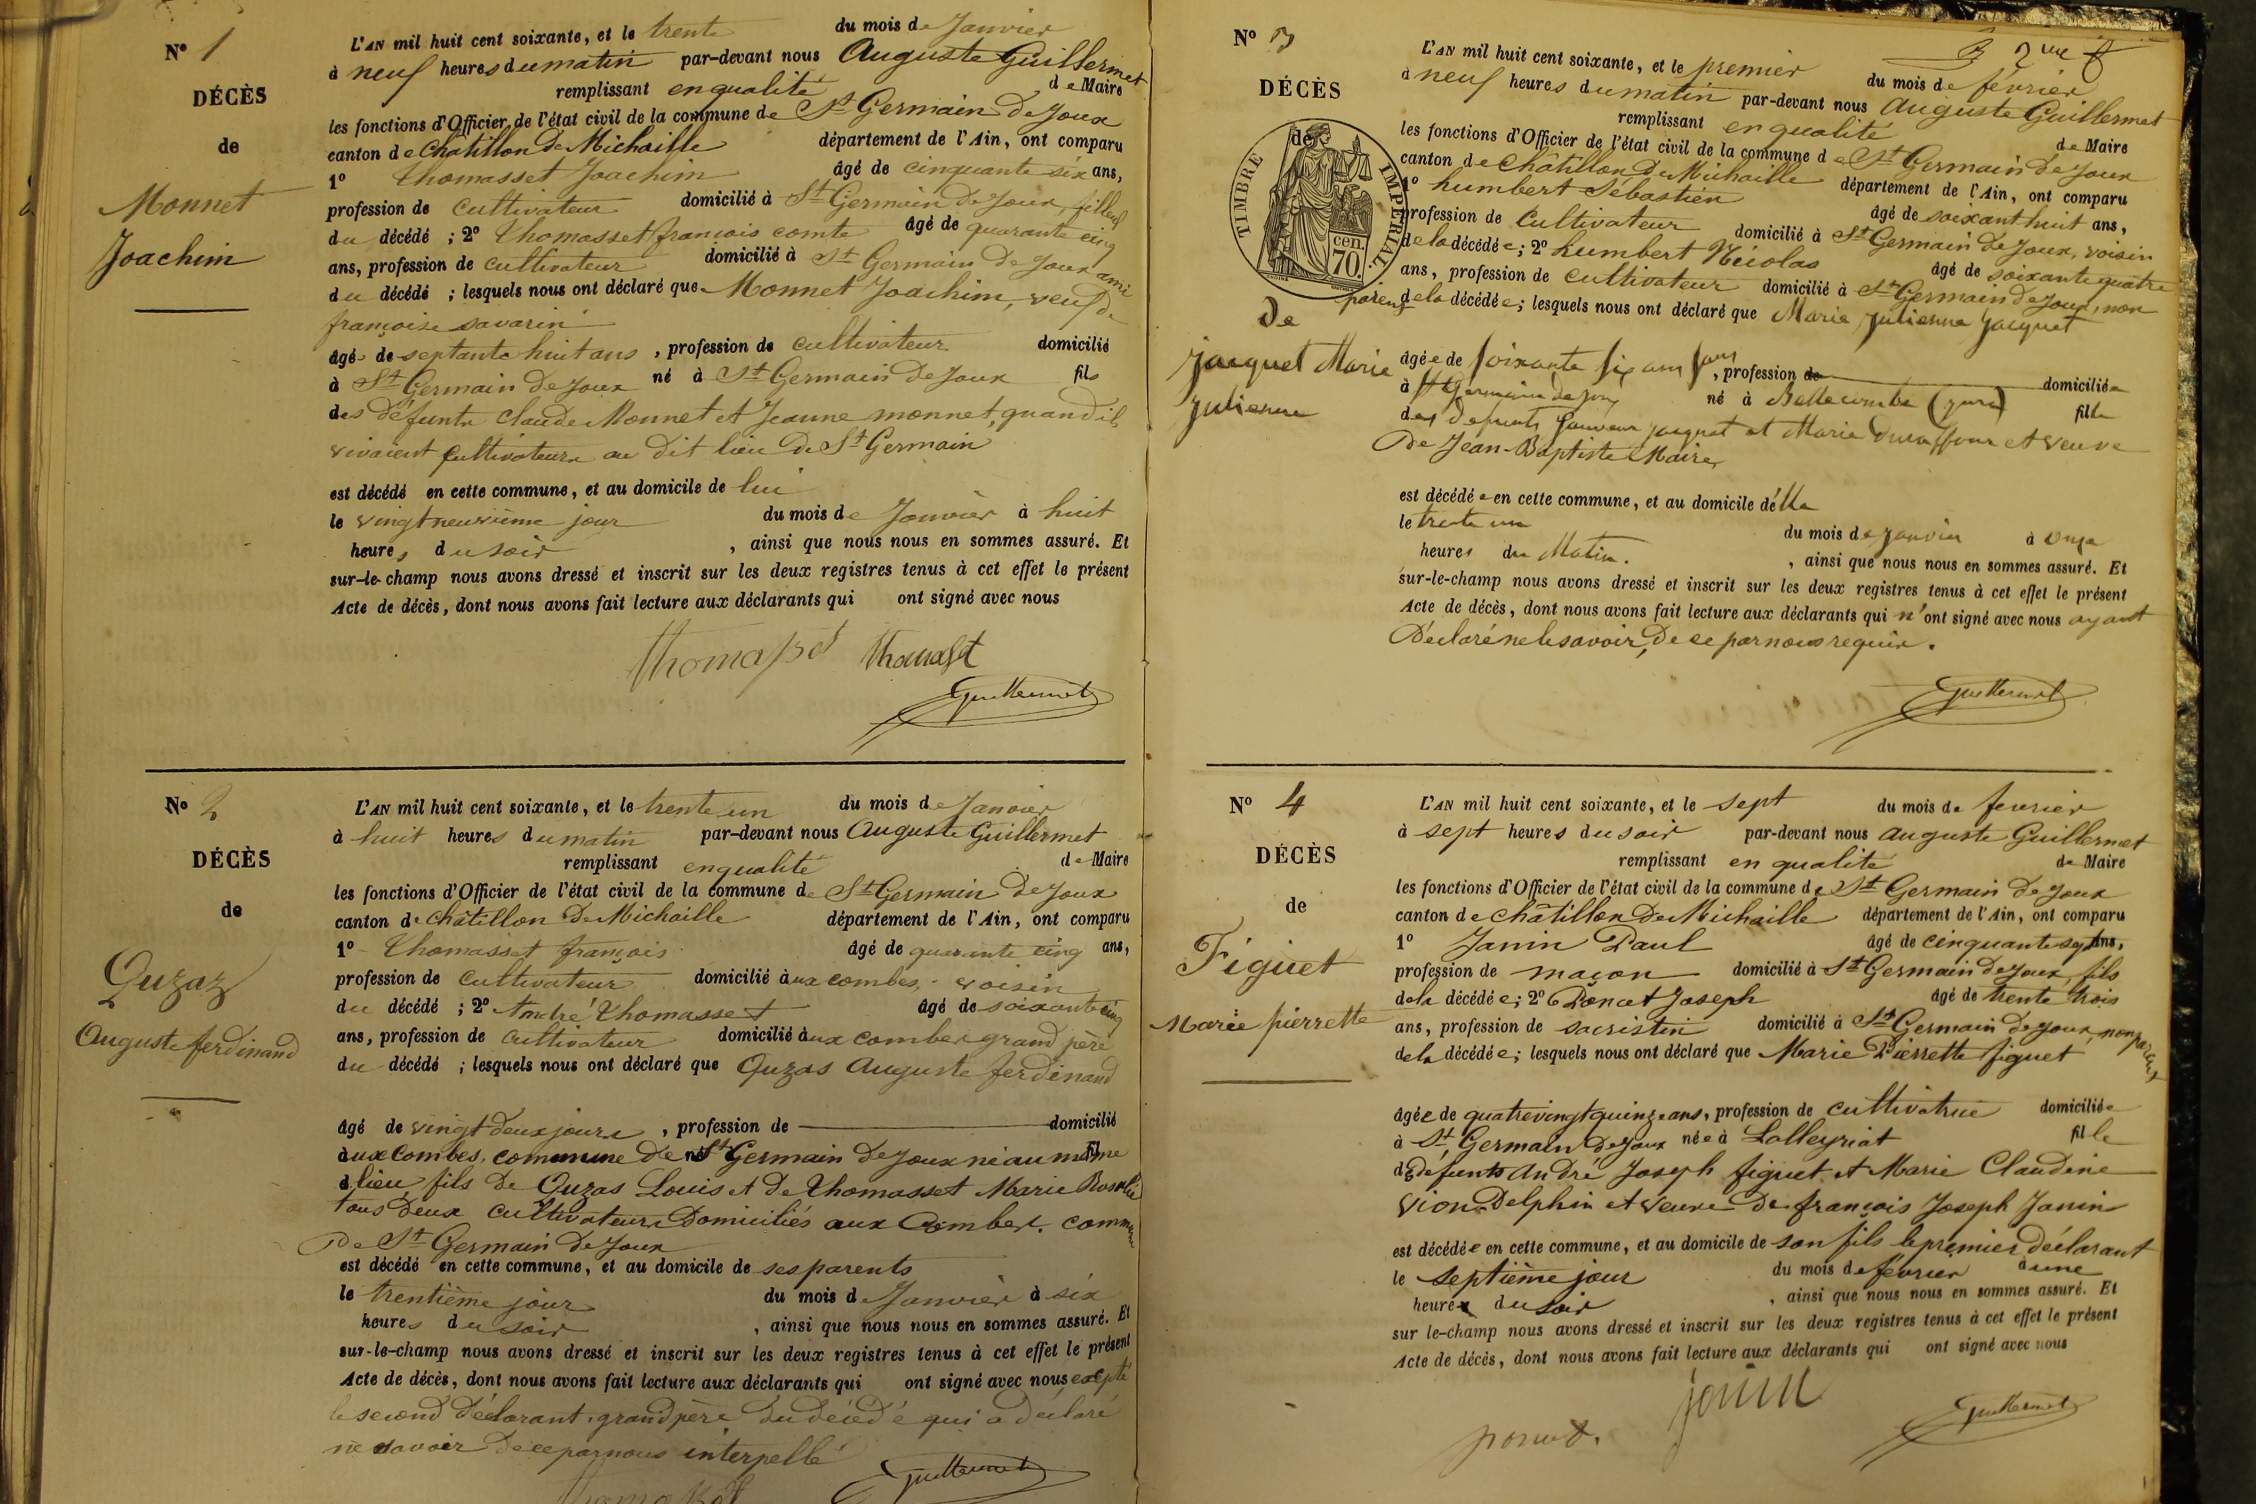 N° 1
DÉCÈS
de
Monnet
Joachim
L'AN mil huit cent soixante, et le trente du mois de Janvier
à neuf heures du matin par-devant nous Auguste Guillermet
remplissant en qualité de Maire
les fonctions d'Officier de l'état civil de la commune de St Germain De Joux
canton de Chatillon De Michaille département de l'Ain, ont comparu
1° Thomasset Joachim âgé de cinquante six ans,
profession de cultivateur domicilié à St Germain De Joux, filleul
du décédé ; 2° Thomasset françois comte âgé de quarante cinq
ans, profession de cultivateur domicilié à St Germain De Joux ami
du décédé ; lesquels nous ont déclaré que Monnet Joachim, veuf de
françoise savarin
âgé de septante huit ans, profession de cultivateur domicilié
à St Germain De Joux né à St Germain De Joux fils
des défunts Claude Monnet et Jeanne monnet, quand ils
vivaient cultivateurs au dit lieu De St Germain
est décédé en cette commune, et au domicile de lui
le vingt neuvième jour du mois de Janvier à huit
heures du soir , ainsi que nous nous en sommes assuré. Et
sur-le-champ nous avons dressé et inscrit sur les deux registres tenus à cet effet le présent
Acte de décès, dont nous avons fait lecture aux déclarants qui ont signé avec nous
Thomasset Thomasset
Guillermet
N° 2
DÉCÈS
de
Quzaz
Auguste ferdinand
L'AN mil huit cent soixante, et le trente un du mois de Janvier
à huit heures du matin par-devant nous Auguste Guillermet
remplissant en qualité de Maire
les fonctions d'Officier de l'état civil de la commune de St Germain De Joux
canton de Châtillon De Michaille département de l'Ain, ont comparu
1° Thomasset françois âgé de quarante cinq ans,
profession de cultivateur domicilié aux combes, voisin
du décédé ; 2° André Thomasset âgé de soixante cinq
ans, profession de cultivateur domicilié aux combes grand père
du décédé ; lesquels nous ont déclaré que Quzas Auguste ferdinand
âgé de vingt deux jours, profession de domicilié
aux Combes, commune De St Germain De Joux né au même
lieu fils de Quzas Louis et de Thomasset Marie Rosalie
tous Deux cultivateurs Domiciliés aux Combes, commune
De St Germain De Joux
est décédé en cette commune, et au domicile de ses parents
le trentième jour du mois de Janvier à six
heures du soir , ainsi que nous nous en sommes assuré. Et
sur-le-champ nous avons dressé et inscrit sur les deux registres tenus à cet effet le présent
Acte de décès, dont nous avons fait lecture aux déclarants qui ont signé avec nous excepté
le second Déclarant, grand père Du décédé qui a Déclaré
ne savoir De ce par nous interpellé
Thomasset Guillermet
N° 3
DÉCÈS
de
TIMBRE IMPÉRIAL
70 cen.
De
Jacquet Marie
Julienne
3 2me
L'AN mil huit cent soixante, et le premier du mois de février
à neuf heures du matin par-devant nous Auguste Guillermet
remplissant en qualité de Maire
les fonctions d'Officier de l'état civil de la commune de St Germain De Joux
canton de Châtillon De Michaille département de l'Ain, ont comparu
1° humbert Sébastien âgé de soixant huit ans,
profession de Cultivateur domicilié à St Germain De Joux, voisin
de la décédée ; 2° humbert Nicolas âgé de soixante quatre
ans, profession de cultivateur domicilié à St Germain De Joux, non
parent de la décédée ; lesquels nous ont déclaré que Marie Julienne Jacquet
âgée de soixante six ans sans, profession de domiciliée
à St Germain de Joux né à Bellecombe (Jura) fille
des Defunts Jacquet et Marie Duraffour et veuve
De Jean-Baptiste Maire,
est décédée en cette commune, et au domicile d'Elle
le trente un du mois de Janvier à onze
heures du Matin. , ainsi que nous nous en sommes assuré. Et
sur-le-champ nous avons dressé et inscrit sur les deux registres tenus à cet effet le présent
Acte de décès, dont nous avons fait lecture aux déclarants qui n'ont signé avec nous ayant
Déclaré ne le savoir, De ce par nous requis.
Guillermet
N° 4
DÉCÈS
de
Figuet
Marie pierrette
L'AN mil huit cent soixante, et le sept du mois de fevrier
à sept heures du soir par-devant nous Auguste Guillermet
remplissant en qualité de Maire
les fonctions d'Officier de l'état civil de la commune de St Germain De Joux
canton de Châtillon De Michaille département de l'Ain, ont comparu
1° Janin Paul âgé de cinquante sept ans,
profession de maçon domicilié à St Germain De Joux, fils
de la décédée ; 2° Poncet Joseph âgé de trente trois
ans, profession de sacristin domicilié à St Germain De Joux, non parent
de la décédée ; lesquels nous ont déclaré que Marie Pierrette figuet
âgée de quatre vingt quinze ans, profession de cultivatrice domiciliée
à St Germain De Joux née à Lalleyriat fille
des defunts André Joseph figuet et Marie Claudine
Vion-Delphin et veuve De françois Joseph Janin
est décédée en cette commune, et au domicile de son fils le premier Déclarant
le septième jour du mois de fevrier à une
heure du soir , ainsi que nous nous en sommes assuré. Et
sur le-champ nous avons dressé et inscrit sur les deux registres tenus à cet effet le présent
Acte de décès, dont nous avons fait lecture aux déclarants qui ont signé avec nous
janin
poncet. Guillermet